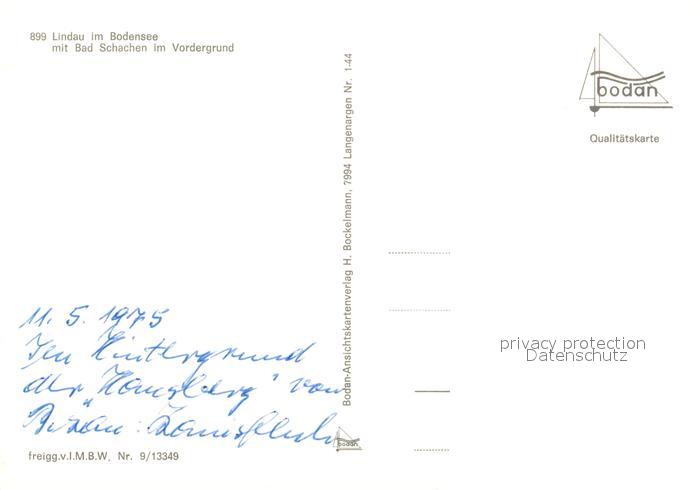 899 Lindau im Bodensee
mit Bad Schachen im Vordergrund
bodan
Qualitätskarte
Bodan-Ansichtskartenverlag H. Bockelmann, 7994 Langenargen Nr. 1-44
privacy protection
Datenschutz
11. 5. 1975
Im Hintergrund
der " " von
bodan
freigg.v.I.M.B.W. Nr. 9/13349